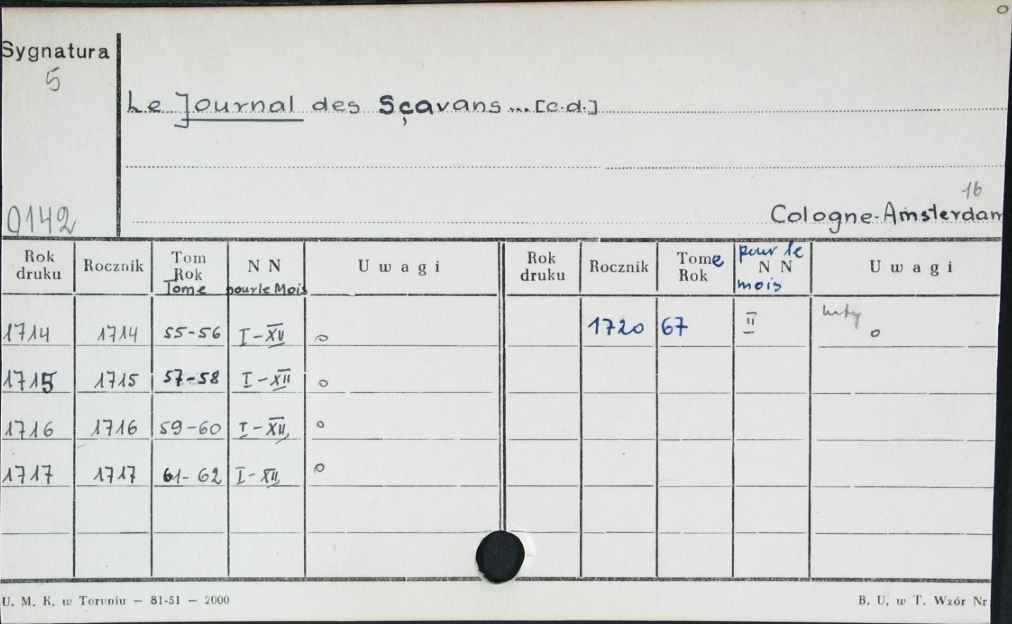 Sygnatura
5
Le Journal des Sçavans ... [c.d.]
16
0142
Cologne-Amsterdam
Rok druku Rocznik Tom Rok Tome N N pour le Mois Uwagi Rok druku Rocznik Tome Rok pour le N N mois Uwagi
1714 1714 55-56 I-XII o 1720 67 II luty o
1715 1715 57-58 I-XII o
1716 1716 59-60 I-XII o
1717 1717 61-62 I-XII o
U. M. K. w Toruniu — 81-51 — 2000
B. U. w T. Wzór Nr